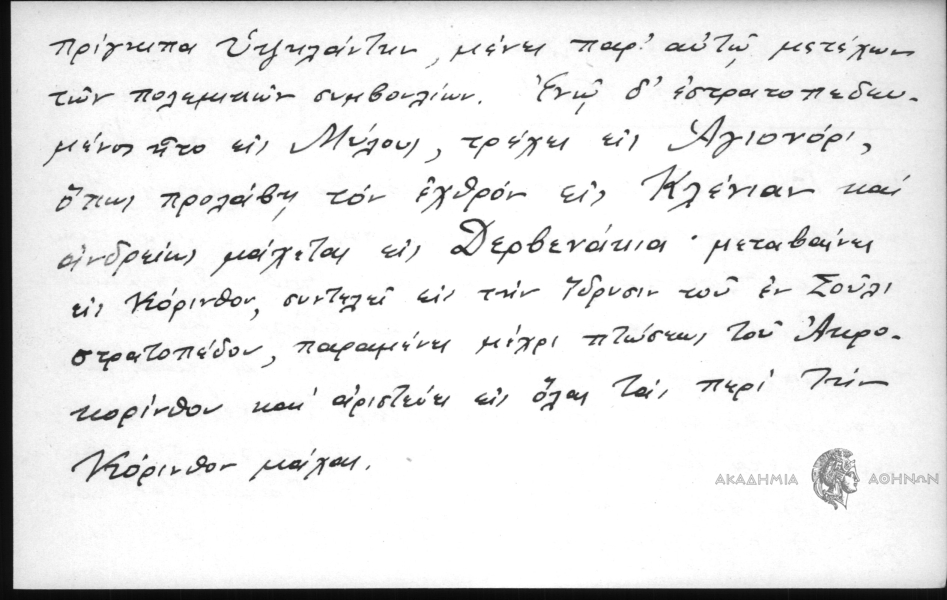 πρίγκιπα Ὑψηλάντην, μένει παρ' αὐτῷ, μετέχων
τῶν πολεμικῶν συμβουλίων. Ἐνῷ δ' ἐστρατοπεδευ-
μένος ἦτο εἰς Μύλους, τρέχει εἰς Ἁγιονόρι,
ὅπως προλάβῃ τόν ἐχθρόν εἰς Κλένιαν καί
ἀνδρείως μάχεται εἰς Δερβενάκια· μεταβαίνει
εἰς Κόρινθον, συντελεῖ εἰς τήν ἵδρυσιν τοῦ ἐν Σούλι
στρατοπέδου, παραμένει μέχρι πτώσεως τοῦ Ἀκρο-
κορίνθου καί ἀριστεύει εἰς ὅλας τάς περί τήν
Κόρινθον μάχας.
ΑΚΑΔΗΜΙΑ ΑΘΗΝΩΝ